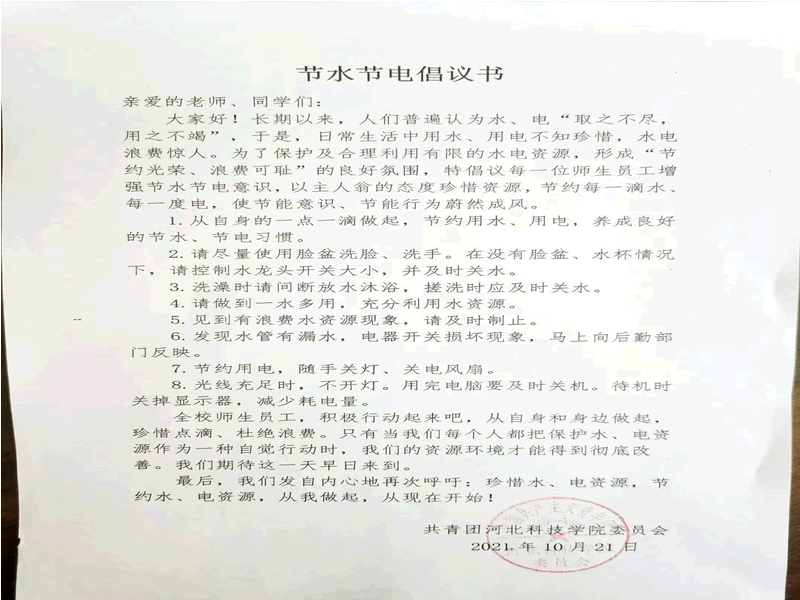 节水节电倡议书
亲爱的老师、同学们：
大家好！长期以来，人们普遍认为水、电“取之不尽，
用之不竭”，于是，日常生活中用水、用电不知珍惜，水电
浪费惊人。为了保护及合理利用有限的水电资源，形成“节
约光荣、浪费可耻”的良好氛围，特倡议每一位师生员工增
强节水节电意识，以主人翁的态度珍惜资源，节约每一滴水、
每一度电，使节能意识、节能行为蔚然成风。
1．从自身的一点一滴做起，节约用水、用电，养成良好
的节水、节电习惯。
2．请尽量使用脸盆洗脸、洗手。在没有脸盆、水杯情况
下，请控制水龙头开关大小，并及时关水。
3．洗澡时请间断放水沐浴，搓洗时应及时关水。
4．请做到一水多用，充分利用水资源。
5．见到有浪费水资源现象，请及时制止。
6．发现水管有漏水，电器开关损坏现象，马上向后勤部
门反映。
7．节约用电，随手关灯、关电风扇。
8．光线充足时，不开灯。用完电脑要及时关机。待机时
关掉显示器，减少耗电量。
全校师生员工，积极行动起来吧，从自身和身边做起，
珍惜点滴、杜绝浪费。只有当我们每个人都把保护水、电资
源作为一种自觉行动时，我们的资源环境才能得到彻底改
善。我们期待这一天早日来到。
最后，我们发自内心地再次呼吁：珍惜水、电资源，节
约水、电资源，从我做起，从现在开始！
共青团河北科技学院委员会
2021 年 10 月 21 日
委员会